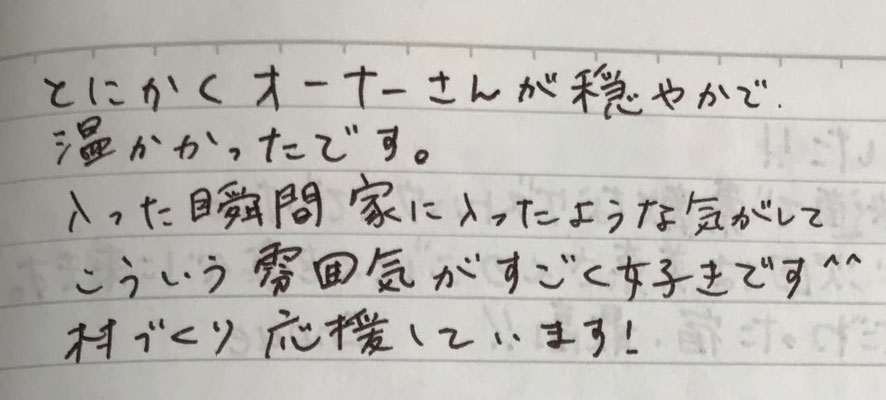 とにかくオーナーさんが穏やかで.
温かかったです。
入った瞬間家に入ったような気がして
こういう雰囲気がすごく好きです^^
村づくり応援しています!